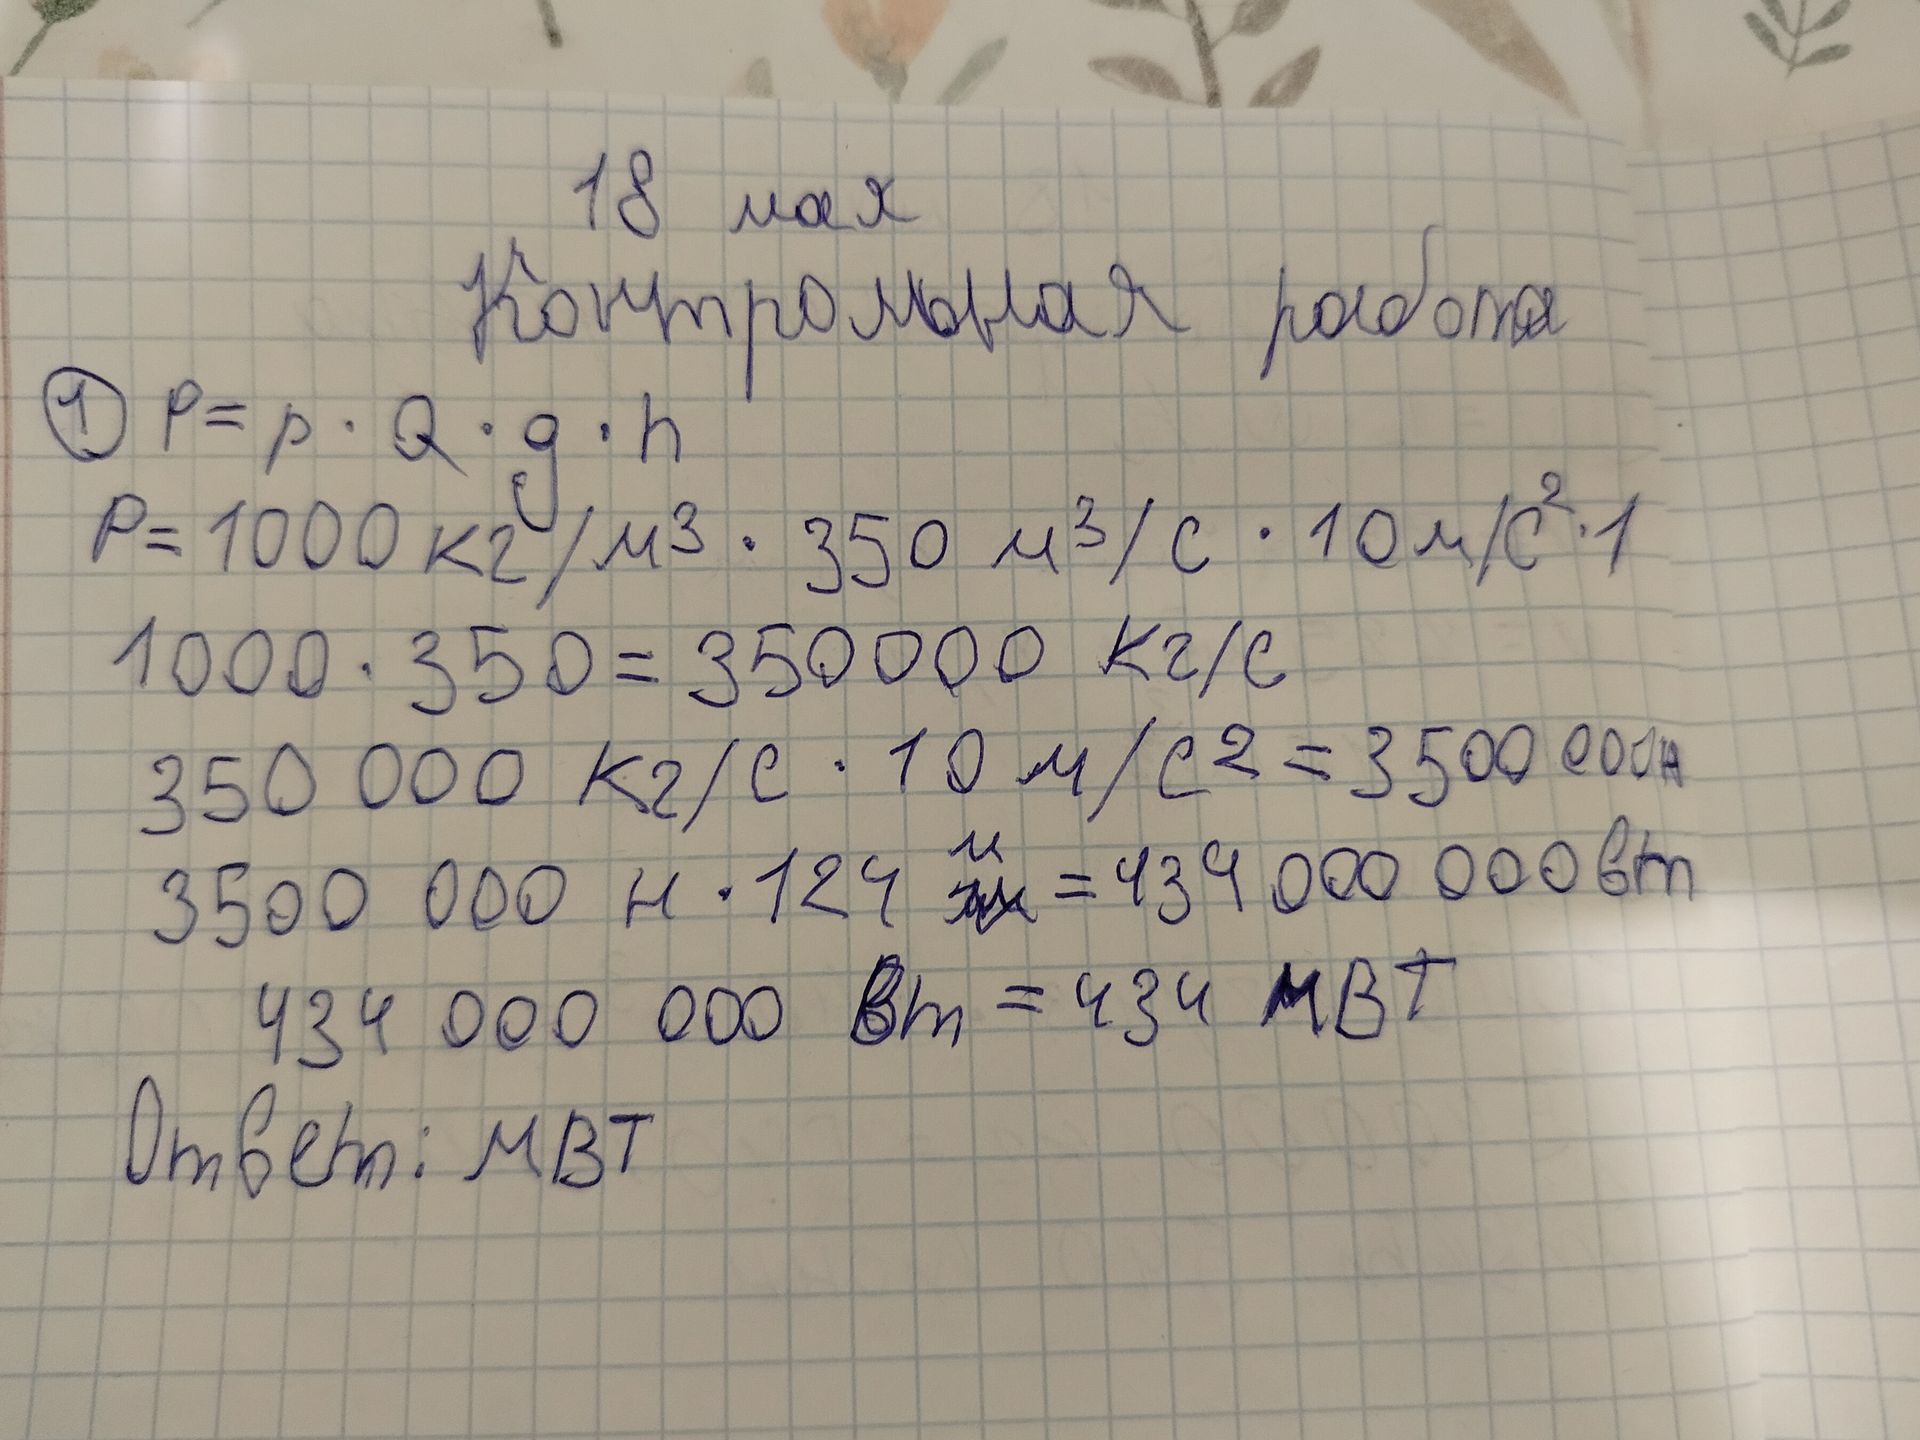 18 мая
Контрольная работа
① P = p · Q · g · h
P = 1000 кг/м3 · 350 м3/с · 10 м/с² · 1
1000 · 350 = 350000 кг/с
350 000 кг/с · 10 м/с2 = 3500 000н
3500 000 н · 124 м = 434 000 000 вт
434 000 000 Вт = 434 МВТ
Ответ: МВТ